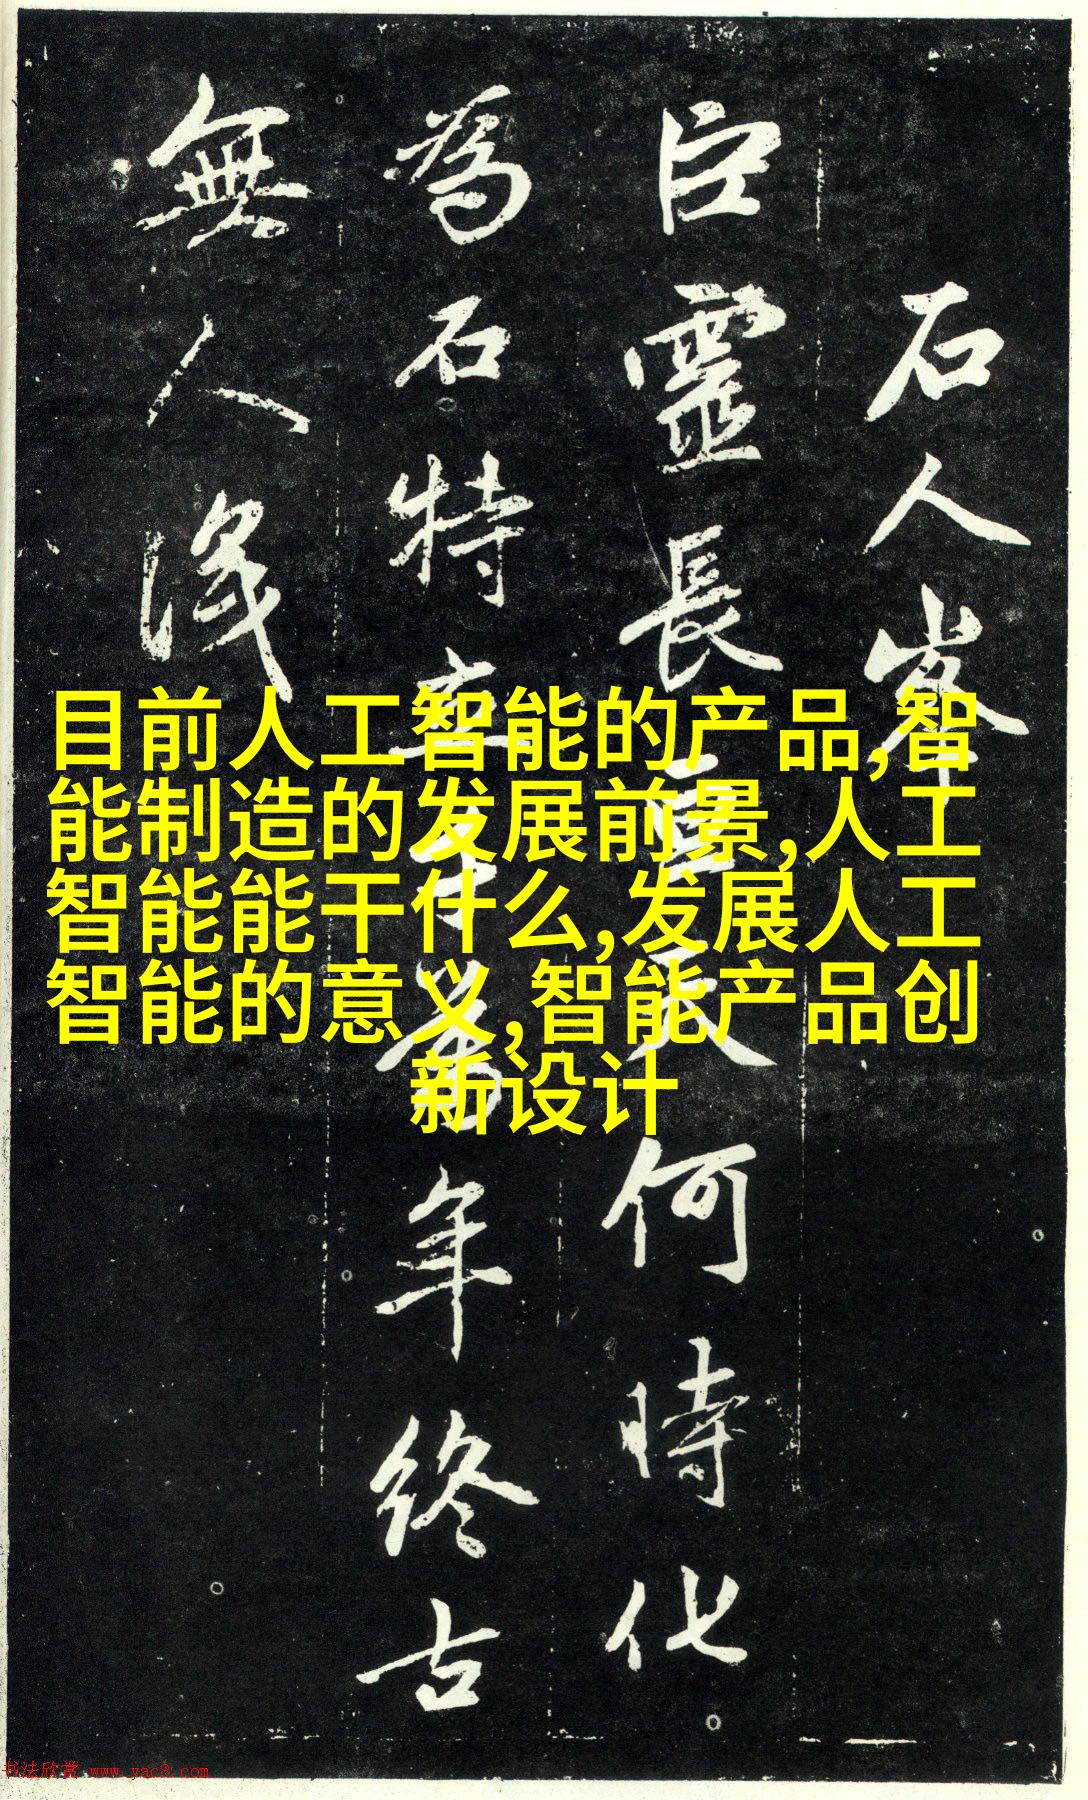 石人峯
巨靈長天何時化
為石特立千萬年終古
無人識
目前人工智能的产品,智
能制造的发展前景,人工
智能能干什么,发展人工
智能的意义,智能产品创
新设计
书法欣赏 www.yac8.com